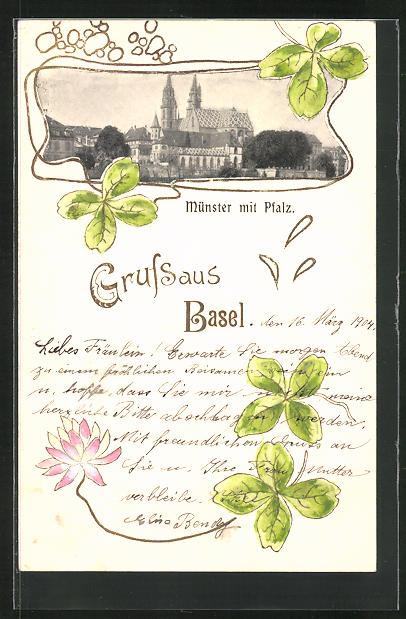 Münster mit Pfalz.
Gruſs aus
Basel.
den 16. März 1904.
Liebes Fräulein! Erwarte Sie morgen Abend
zu einem fröhlichen Beisammensein
u. hoffe, dass Sie mir meine
herzliche Bitte abschlagen werden,
Mit freundlichen Gruss an
Sie u. Ihre Frau Mutter
verbleibe